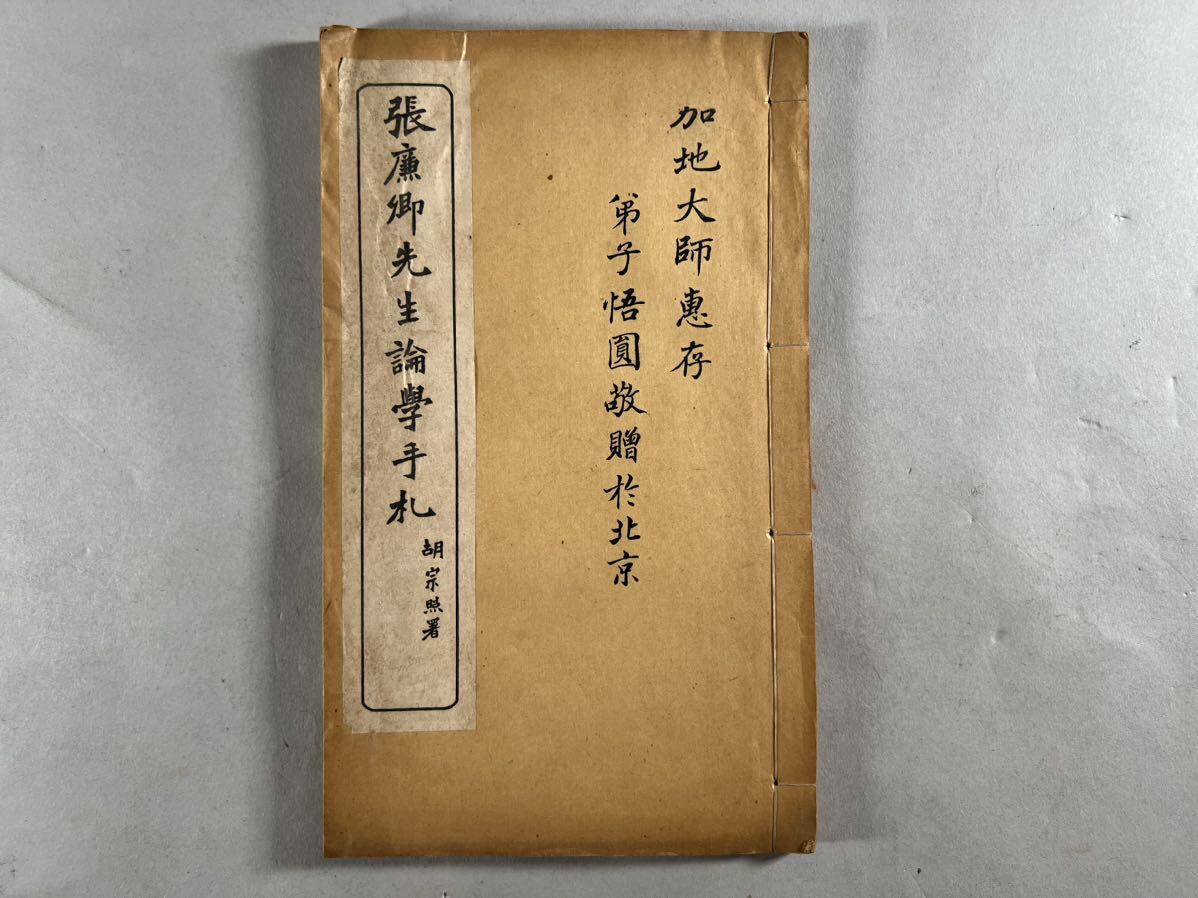 加地大師惠存
弟子悟圓敬贈於北京
張廉卿先生論學手札
胡宗照署